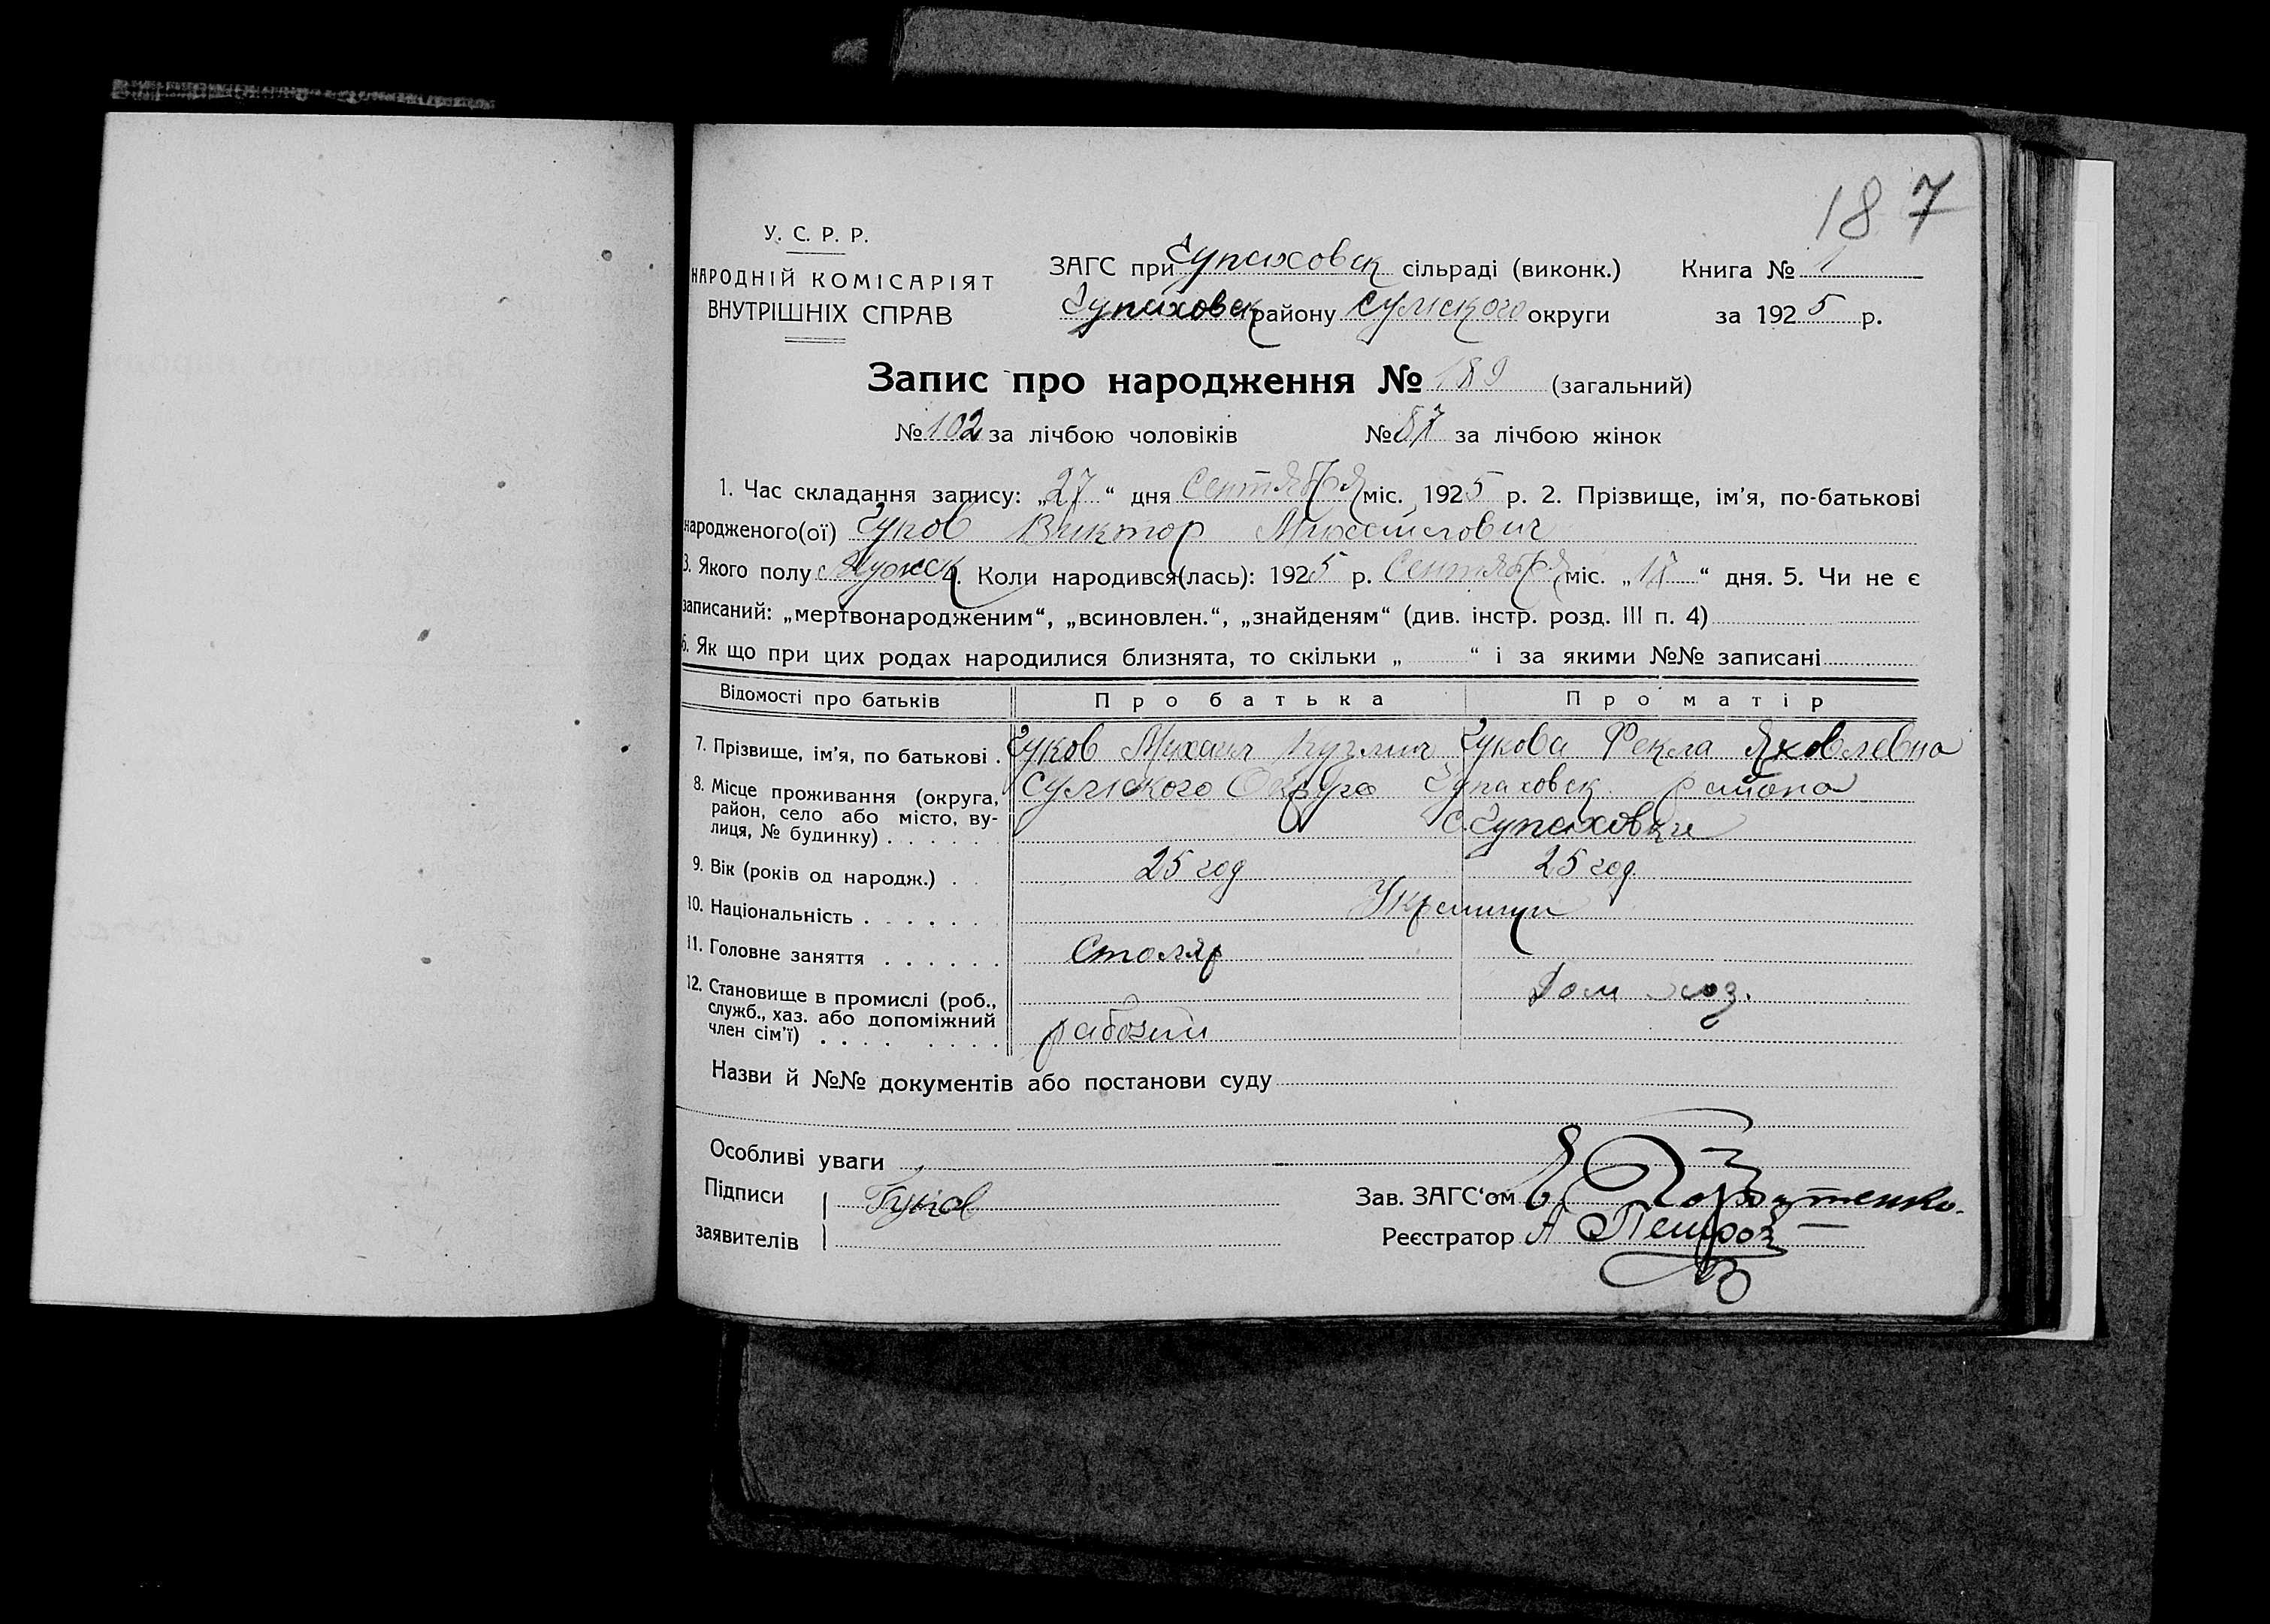 187
У. С. Р. Р.
НАРОДНІЙ КОМІСАРІЯТ
ВНУТРІШНІХ СПРАВ
ЗАГС при Чупаховск сільраді (виконк.) Книга № 1
Чупаховск району Сумского округи за 1925 р.
Запис про народження № 189 (загальний)
№ 102 за лічбою чоловіків № 87 за лічбою жінок
1. Час складання запису: „27“ дня Сентября міс. 1925 р. 2. Прізвище, ім’я, по-батькові
народженого(ої) Гуков Виктор Михайлович
3. Якого полу Мужск 4. Коли народився(лась): 1925 р. Сентября міс. „“ дня. 5. Чи не є
записаний: „мертвонародженим“, „всиновлен.“, „знайденям“ (див. інстр. розд. III п. 4)
6. Як що при цих родах народилися близнята, то скільки „ “ і за якими №№ записані
Відомості про батьків Про батька Про матір
7. Прізвище, ім’я, по батькові . Гуков Михаил Кузмич Гукова Фекла Яковлевна
8. Місце проживання (округа, Сумского Округа Чупаховск. района
район, село або місто, ву-
лиця, № будинку) . . . . . . с. Чупаховки
9. Вік (років од народж.) . . 25 год 25 год.
10. Національність . . . . . . Украинци
11. Головне заняття . . . . . . Столяр
12. Становище в промислі (роб., Дом хоз.
служб., хаз. або допоміжний
член сім’ї) . . . . . . . . рабочий
Назви й №№ документів або постанови суду
Особливі уваги
Підписи Гуков Зав. ЗАГС‘ом
заявителів Реєстратор А